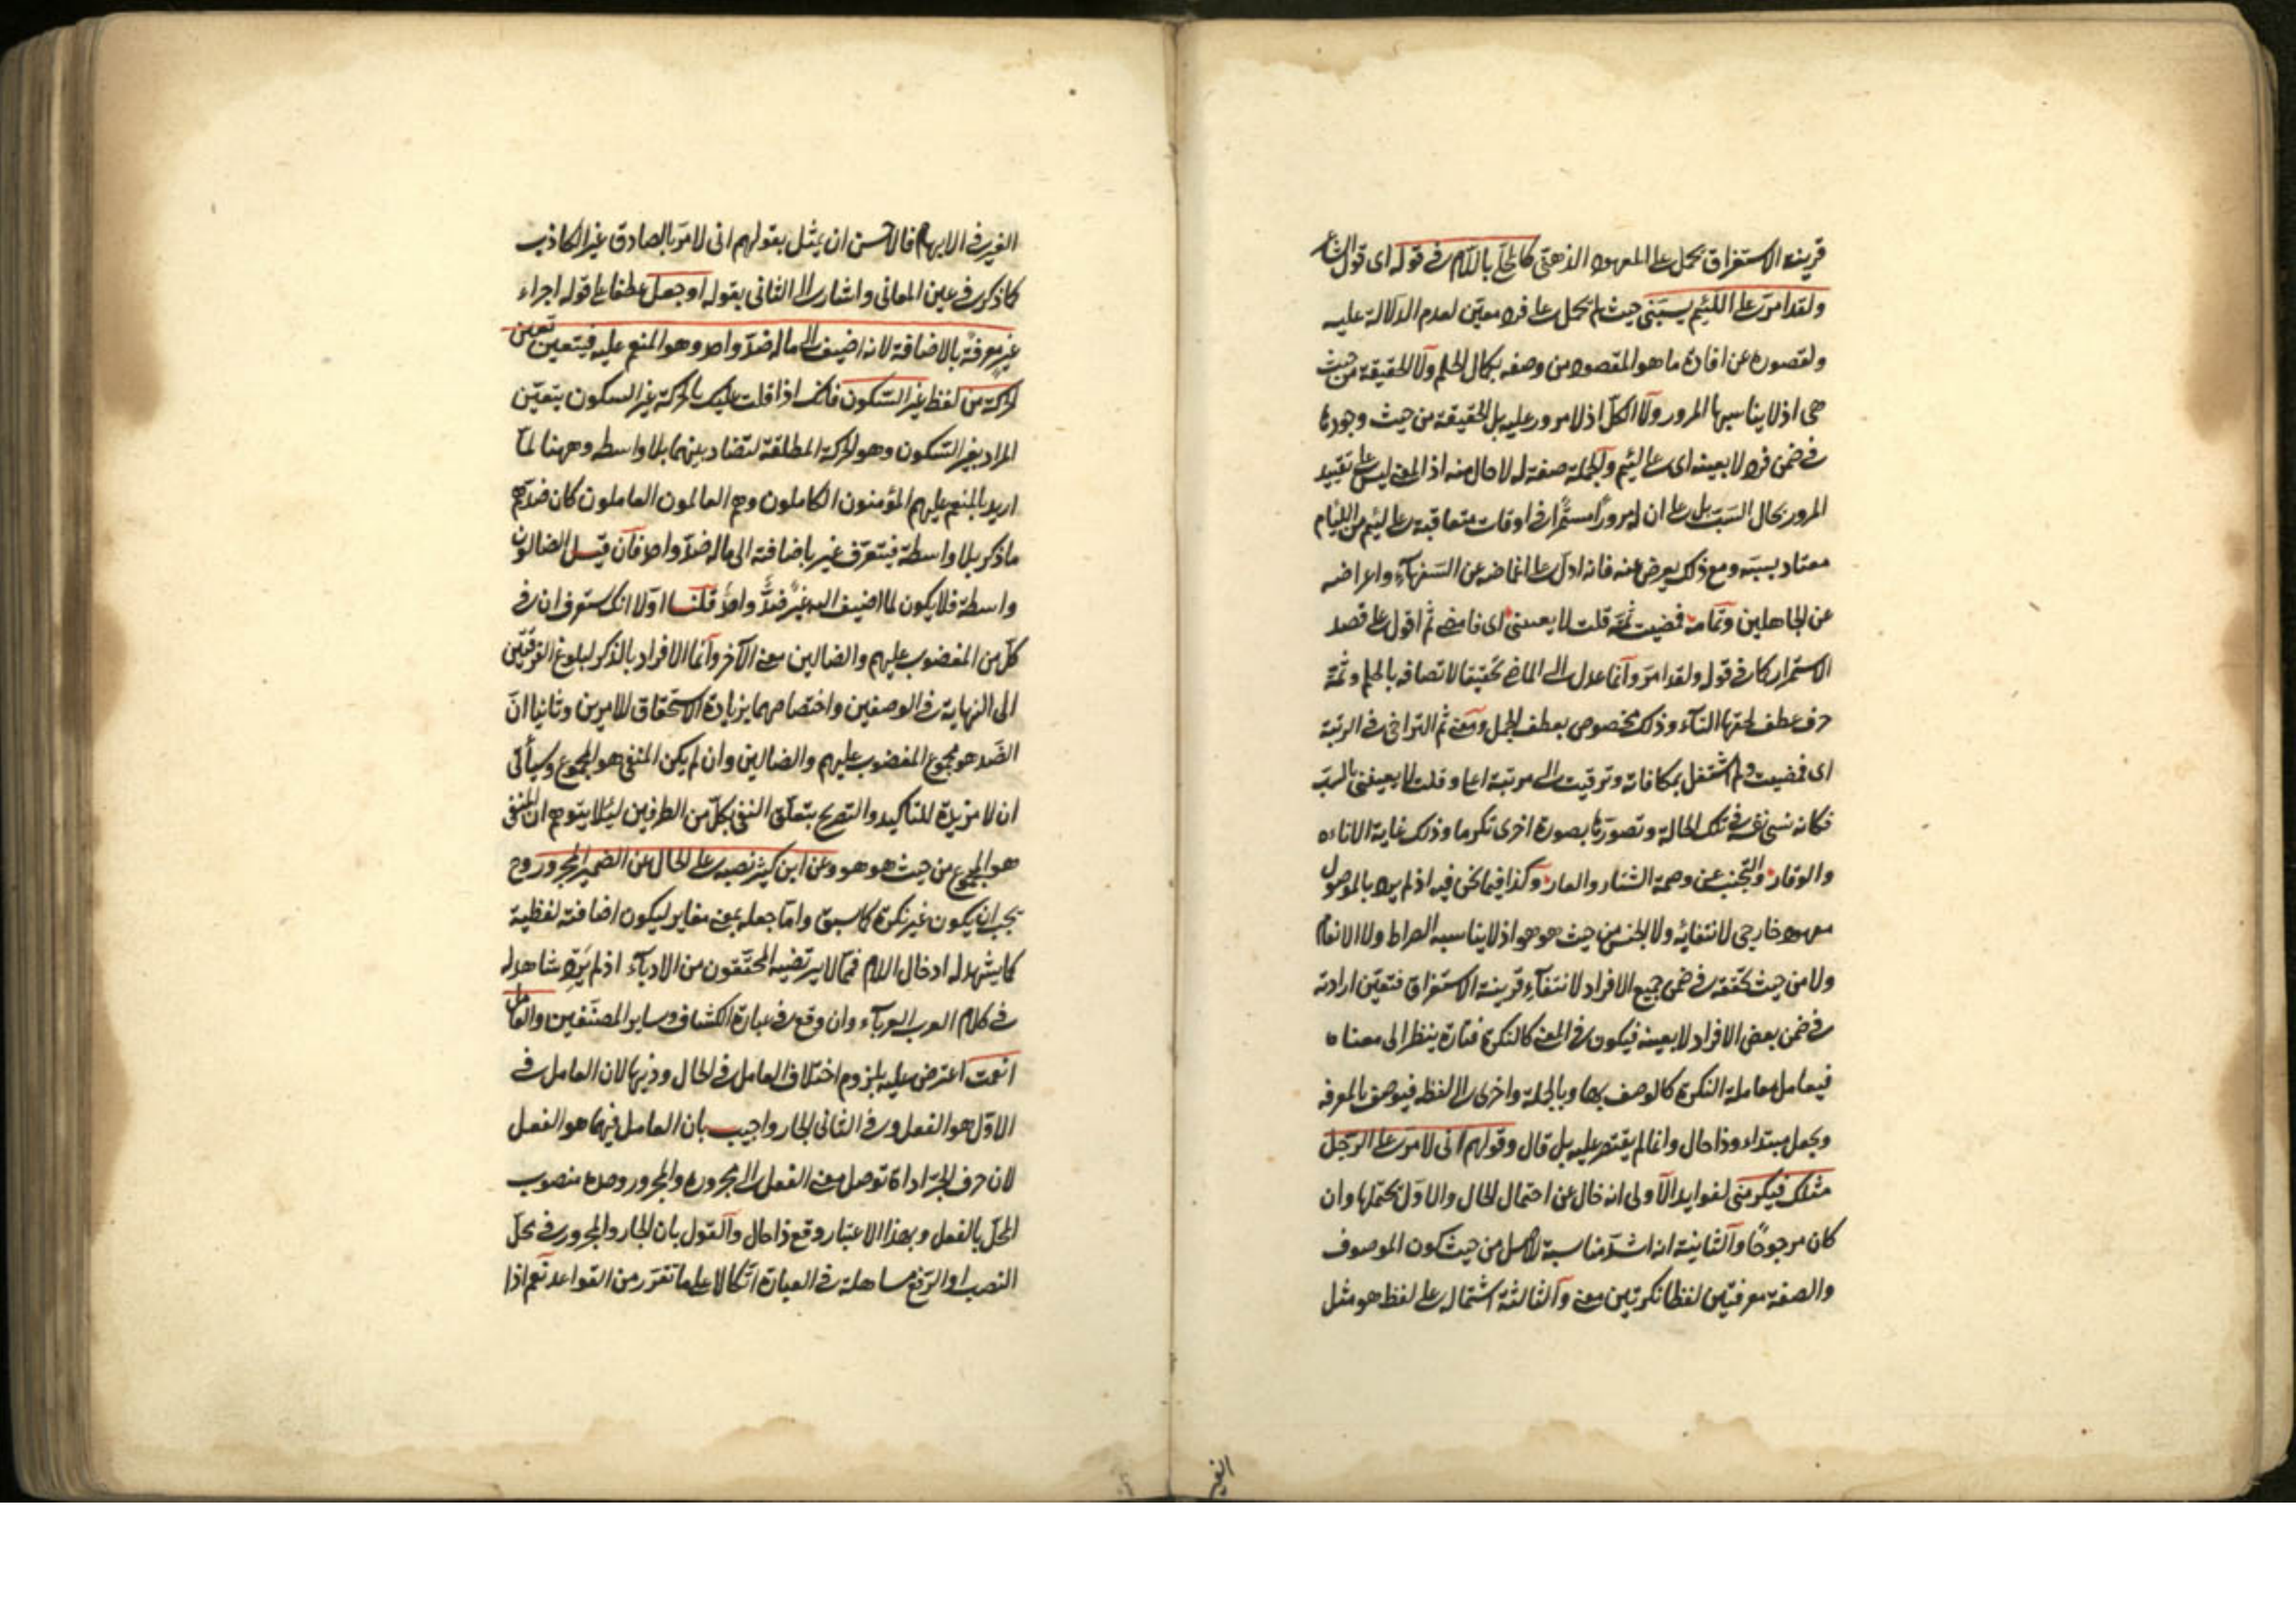 قرينة الاستغراق يحمل على المعهود الذهني كالمحلى باللام في قوله اى قول الشاعر
ولقد امر على اللئيم يسبني حيث لم يحمل على فرد معين لعدم الدلالة عليه
ولقصوره عن افادة ما هو المقصود من وصفه بكمال الحلم ولا الحقيقة من حيث
هى اذ لا يناسبها المرور ولا الكل اذ لا مرور عليه بل الحقيقة من حيث وجودها
في ضمن فرد لا بعينه اى على لئيم والجملة صفة له لا حال منه اذ المعنى ليس على تقييد
المرور بحال السب بل على ان له مرورا مستمرا في اوقات متعاقبة على لئيم من اللئام
معتاد بسبه ومع ذلك يعرض عنه فانه ادل على اغماضه عن السفهآء واعراضه
عن الجاهلين وتمامه فمضيت ثمة قلت لا يعنيني اى فامضى ثم اقول على قصد
الاستمرار كما في قوله ولقد امر وانما عدل الى الماضى تحقيقا لاتصافه بالحلم وثمة
حرف عطف لحقها التاء وذلك مخصوص بعطف الجمل ومعنى ثم التراخى في الرتبة
اى فمضيت ولم اشتغل بمكافاته وترقيت الى مرتبة اعلى وقلت لا يعنيني بالسب
فكانه نسى نفسه في تلك الحالة وتصورها بصورة اخرى تكرما وذلك غاية الاناءة
والوقار والتجنب عن وصمة الشنار والعار وكذا فيما نحن فيه اذ لم يرد بالموصول
معهود خارجى لانتفائه ولا الجنس من حيث هو هو اذ لا يناسبه الصراط ولا الانعام
ولا من حيث تحققه في ضمن جميع الافراد لانتفآء قرينة الاستغراق فتعين ارادته
في ضمن بعض الافراد لا بعينه فيكون في المعنى كالنكرة فتارة ينظر الى معناه
فيعامل معاملة النكرة كالوصف بها وبالجملة واخرى الى لفظه فيوصف بالمعرفة
ويجعل مبتداء وذا حال وانما لم يقتصر عليه بل قال وقولهم انى لامر على الرجل
مثلك فيكرمنى لفوايد الاولى انه خال عن احتمال الحال والاول يحتملها وان
كان مرجوحا والثانية انه اشد مناسبة للاصل من حيث كون الموصوف
والصفة معرفتين لفظا نكرتين معنى والثالثة اشتماله على لفظ هو مثل
الغير
الغير في الابهام فالاحسن ان يمثل بقولهم انى لامر بالصادق غير الكاذب
كما ذكر في عين المعانى واشار الى الثانى بقوله او جعل عطفا على قوله اجراء
غير معرفة بالاضافة لانه اضيف الى ماله ضد واحد وهو المنعم عليه فيتعين تعين
الحركة من لفظ غير السكون فانك اذا قلت عليك بالحركة غير السكون يتعين
المراد بغير السكون وهو الحركة المطلقة لتضاد بينهما بلا واسطه وههنا لما
اريد بالمنعم عليهم المؤمنون الكاملون وهم العالمون العاملون كان ضدهم
ما ذكر بلا واسطة فيتعرف غير باضافته الى ماله ضد واحد فان قيل الضالون
واسطة فلا يكون لما اضيف اليه غير ضد واحد قلنا اولا انك ستعرف ان في
كل من المغضوب عليهم والضالين معنى الآخر وانما الافراد بالذكر لبلوغ الفرقتين
الى النهاية في الوصفين واختصاصهما بزيادة الاستحقاق للامرين وثانيا ان
الضد هو مجموع المغضوب عليهم والضالين وان لم يكن المنفى هو المجموع وسيأتى
ان لا مزيدة للتاكيد والتصريح بتعلق النفى بكل من الطرفين ليلا يتوهم ان المنفى
هو المجموع من حيث هو هو وعن ابن كثير نصبه على الحال عن الضمير المجرور وح
يجب ان يكون غير نكرة كما سبق واما جعله بمعنى مغاير ليكون اضافته لفظية
كما يشهد له ادخال اللام فمما لا يرتضيه المحققون من الادبآء اذ لم يرد شاهد له
في كلام العرب العربآء وان وقع في عبارة الكشاف وساير المصنفين والعامل
انعمت اعترض عليه بلزوم اختلاف العامل في الحال وذيها لان العامل في
الاول هو الفعل وفي الثانى الجار واجيب بان العامل فيهما هو الفعل
لان حرف الجر اداة توصل معنى الفعل الى مجروره والمجرور وحده منصوب
المحل بالفعل وبهذا الاعتبار وقع ذا حال والقول بان الجار والمجرور في محل
النصب او الرفع مساهلة في العبارة اتكالا على ما تقرر من القواعد نعم اذا